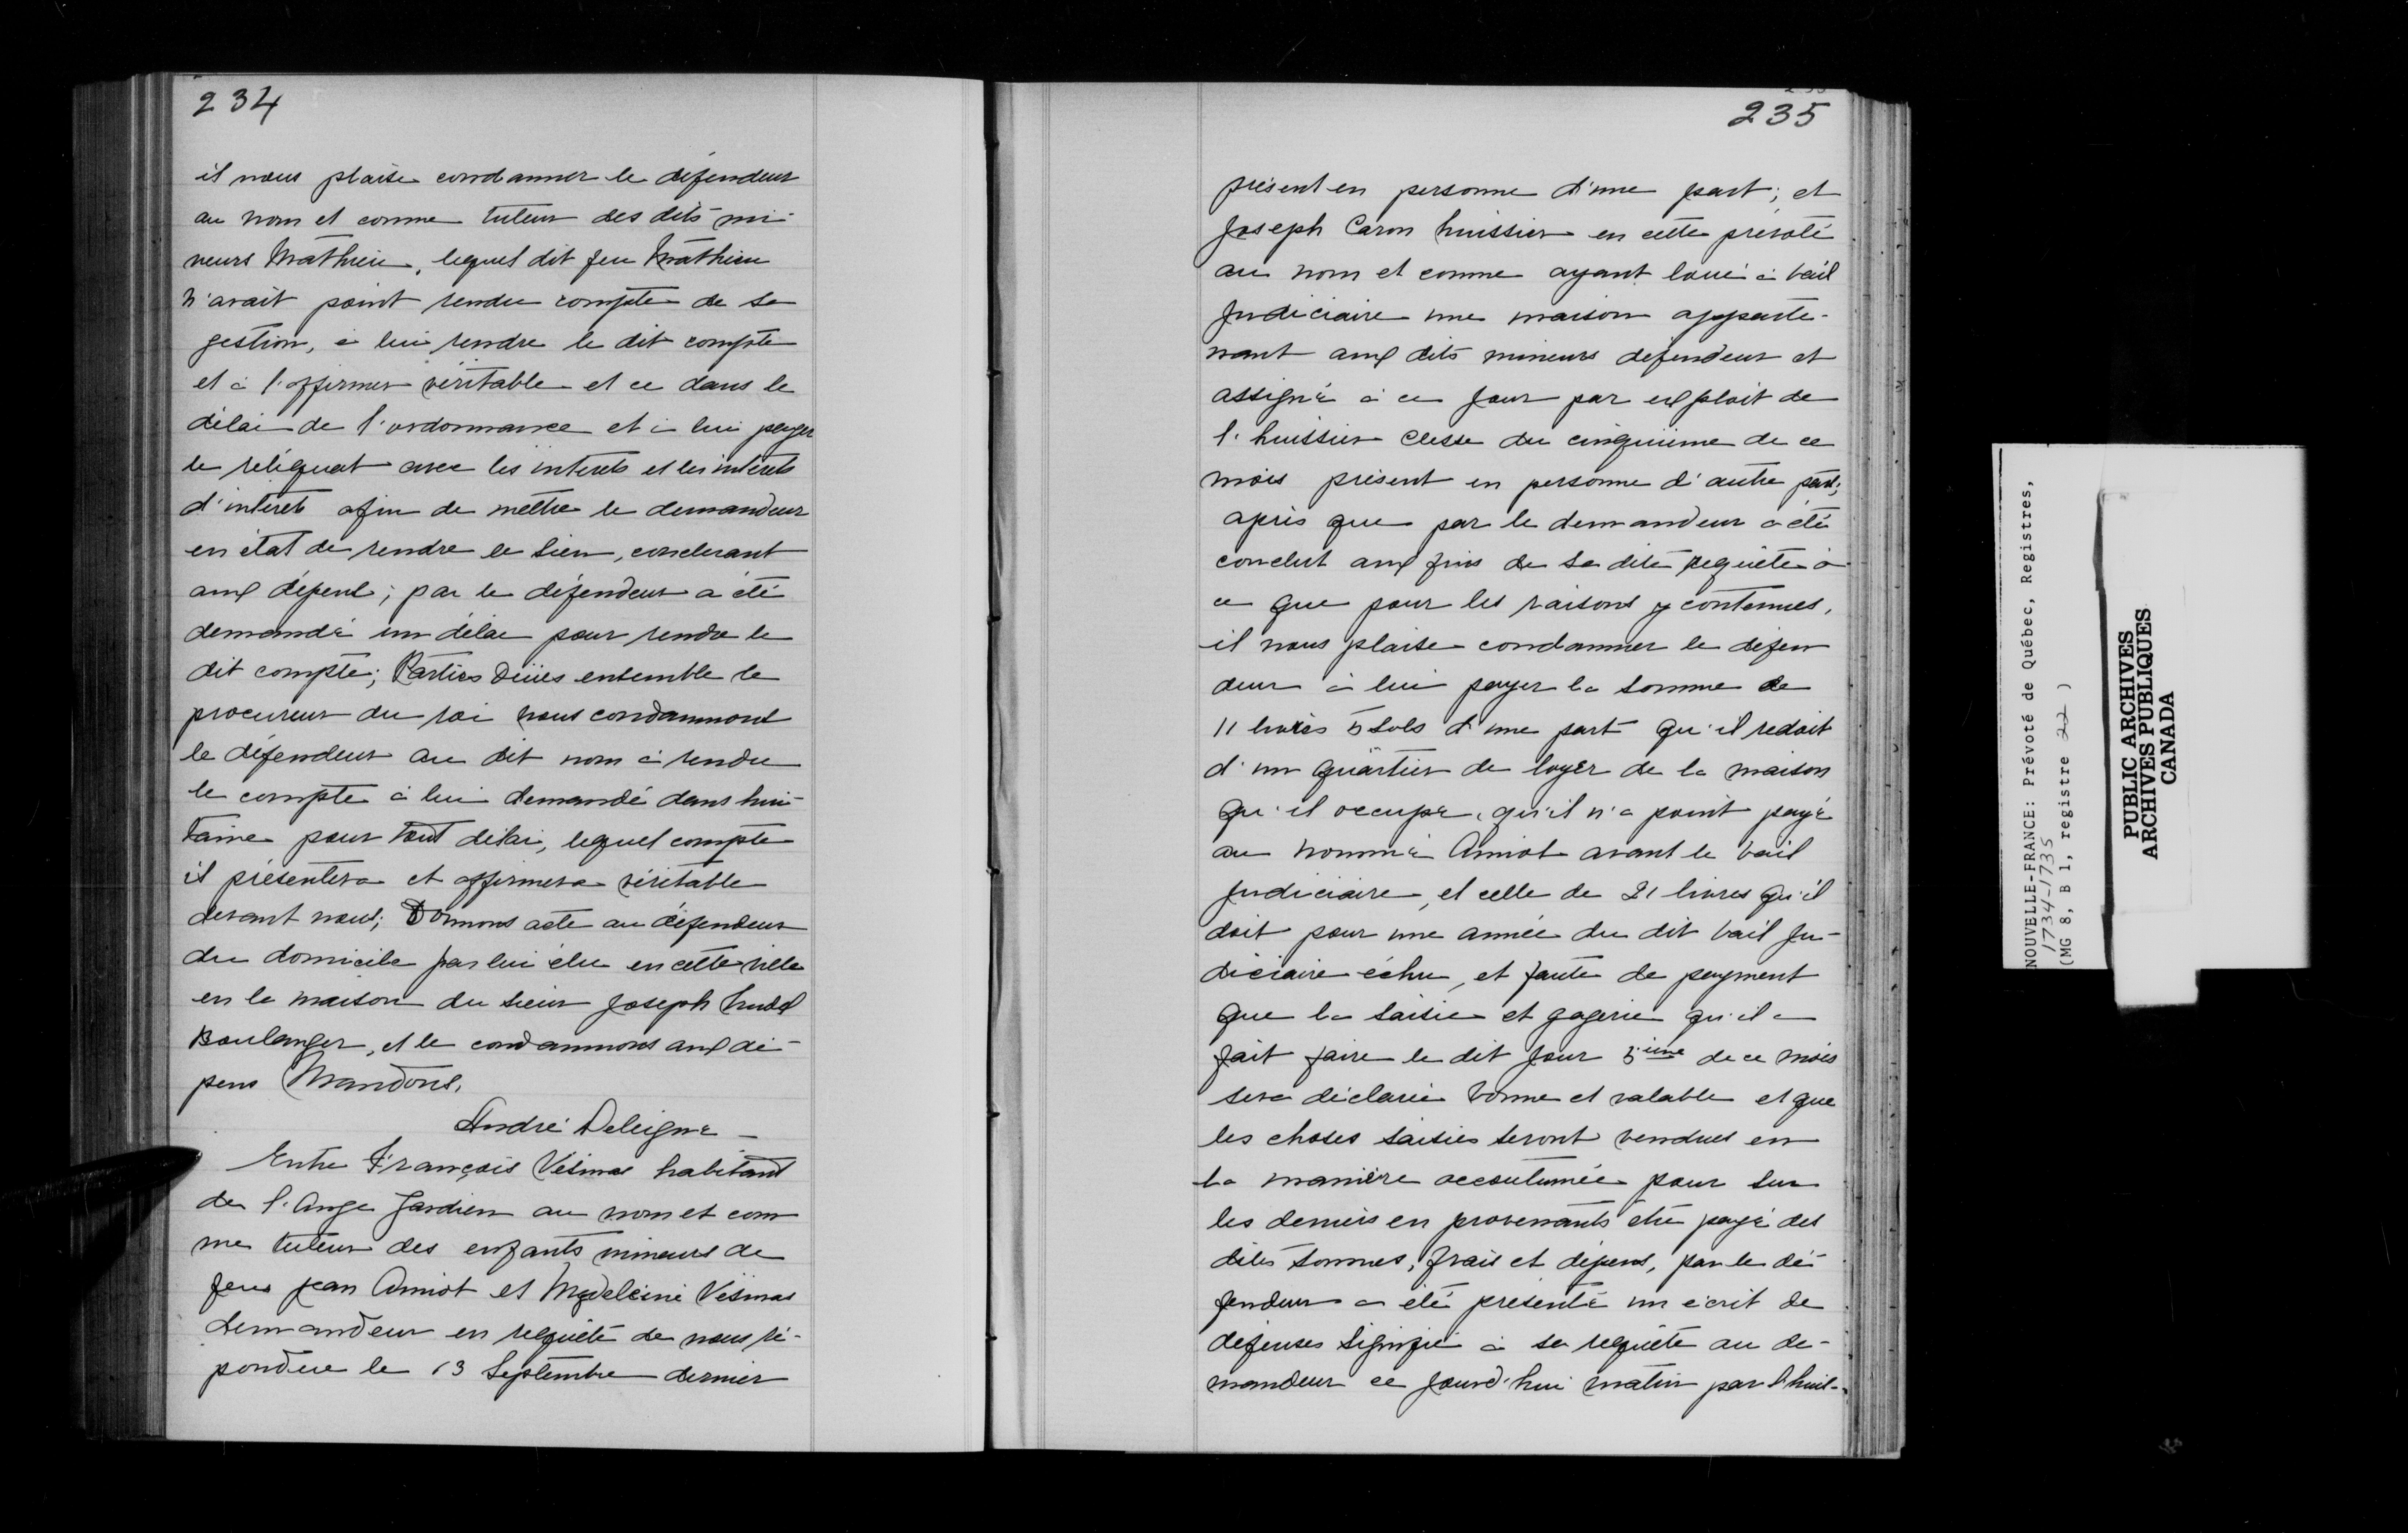 234
il nous plaise condamner le défendeur
au nom et comme tuteur des dits mi-
neurs Mathieu, lequel dit feu Mathieu
n'avait point rendu compte de sa
gestion, à lui rendre le dit compte
et à l'affirmer véritable et ce dans le
délai de l'ordonnance et à lui payer
le reliquat avec les intérets et les intérets
d'intérets afin de mettre le demandeur
en état de rendre le sien, concluant
aux dépens; par le défendeur a été
demandé un délai pour rendre le
dit compte; Parties ouïes ensemble le
procureur du roi nous condamnons
le défendeur au dit nom à rendre
le compte à lui demandé dans hui-
taine pour tout délai, lequel compte
il présentera et affirmera véritable
devant nous; Donnons acte au défendeur
du domicile par lui élu en cette ville
en la maison du sieur Joseph
Boulanger, et le condamnons aux dé-
pens Mandons.
André Deleigne
Entre François Vésinas habitant
de l'Ange Gardien au nom et com
me tuteur des enfants mineurs de
feus jean Amiot et Madeleine Vésinas
demandeur en requête de nous ré-
pondue le 13 Septembre dernier
235
présent en personne d'une part; et
Joseph Caron huissier en cette prévoté
au nom et comme ayant loué à bail
Judiciaire une maison apparte-
nant aux dits mineurs défendeur et
assigné à ce jour par exploit de
l'huissier Clesse du cinquième de ce
mois présent en personne d'autre part;
après que par le demandeur a été
conclut aux fins de sa dite requête à
ce que pour les raisons y contenues,
il nous plaise condamner le défen
deur à lui payer la somme de
11 livres 5 sols d'une part qu'il redoit
d'un quartier de loyer de la maison
qu'il occupe, qu'il n'a point payé
au nommé Amiot avant le bail
judiciaire, et celle de 21 livres qu'il
doit pour une année du dit bail Ju-
diciaire échu, et faute de payment
que la saisie et gagerie qu'il a
fait faire le dit jour 5ième de ce mois
sera déclarée bonne et valable et que
les choses saisies seront vendues en
la manière accoutumée pour sur
les deniers en provenants être payé des
dites sommes, frais et dépens, par le dé-
fendeur a été présenté un écrit de
défenses signifié à sa requête au de-
mandeur ce jourd'hui matin par l'huis-
NOUVELLE-FRANCE: Prévoté de Québec, Registres,
1734-1735
(MG 8, B 1, registre 22 )
PUBLIC ARCHIVES
ARCHIVES PUBLIQUES
CANADA